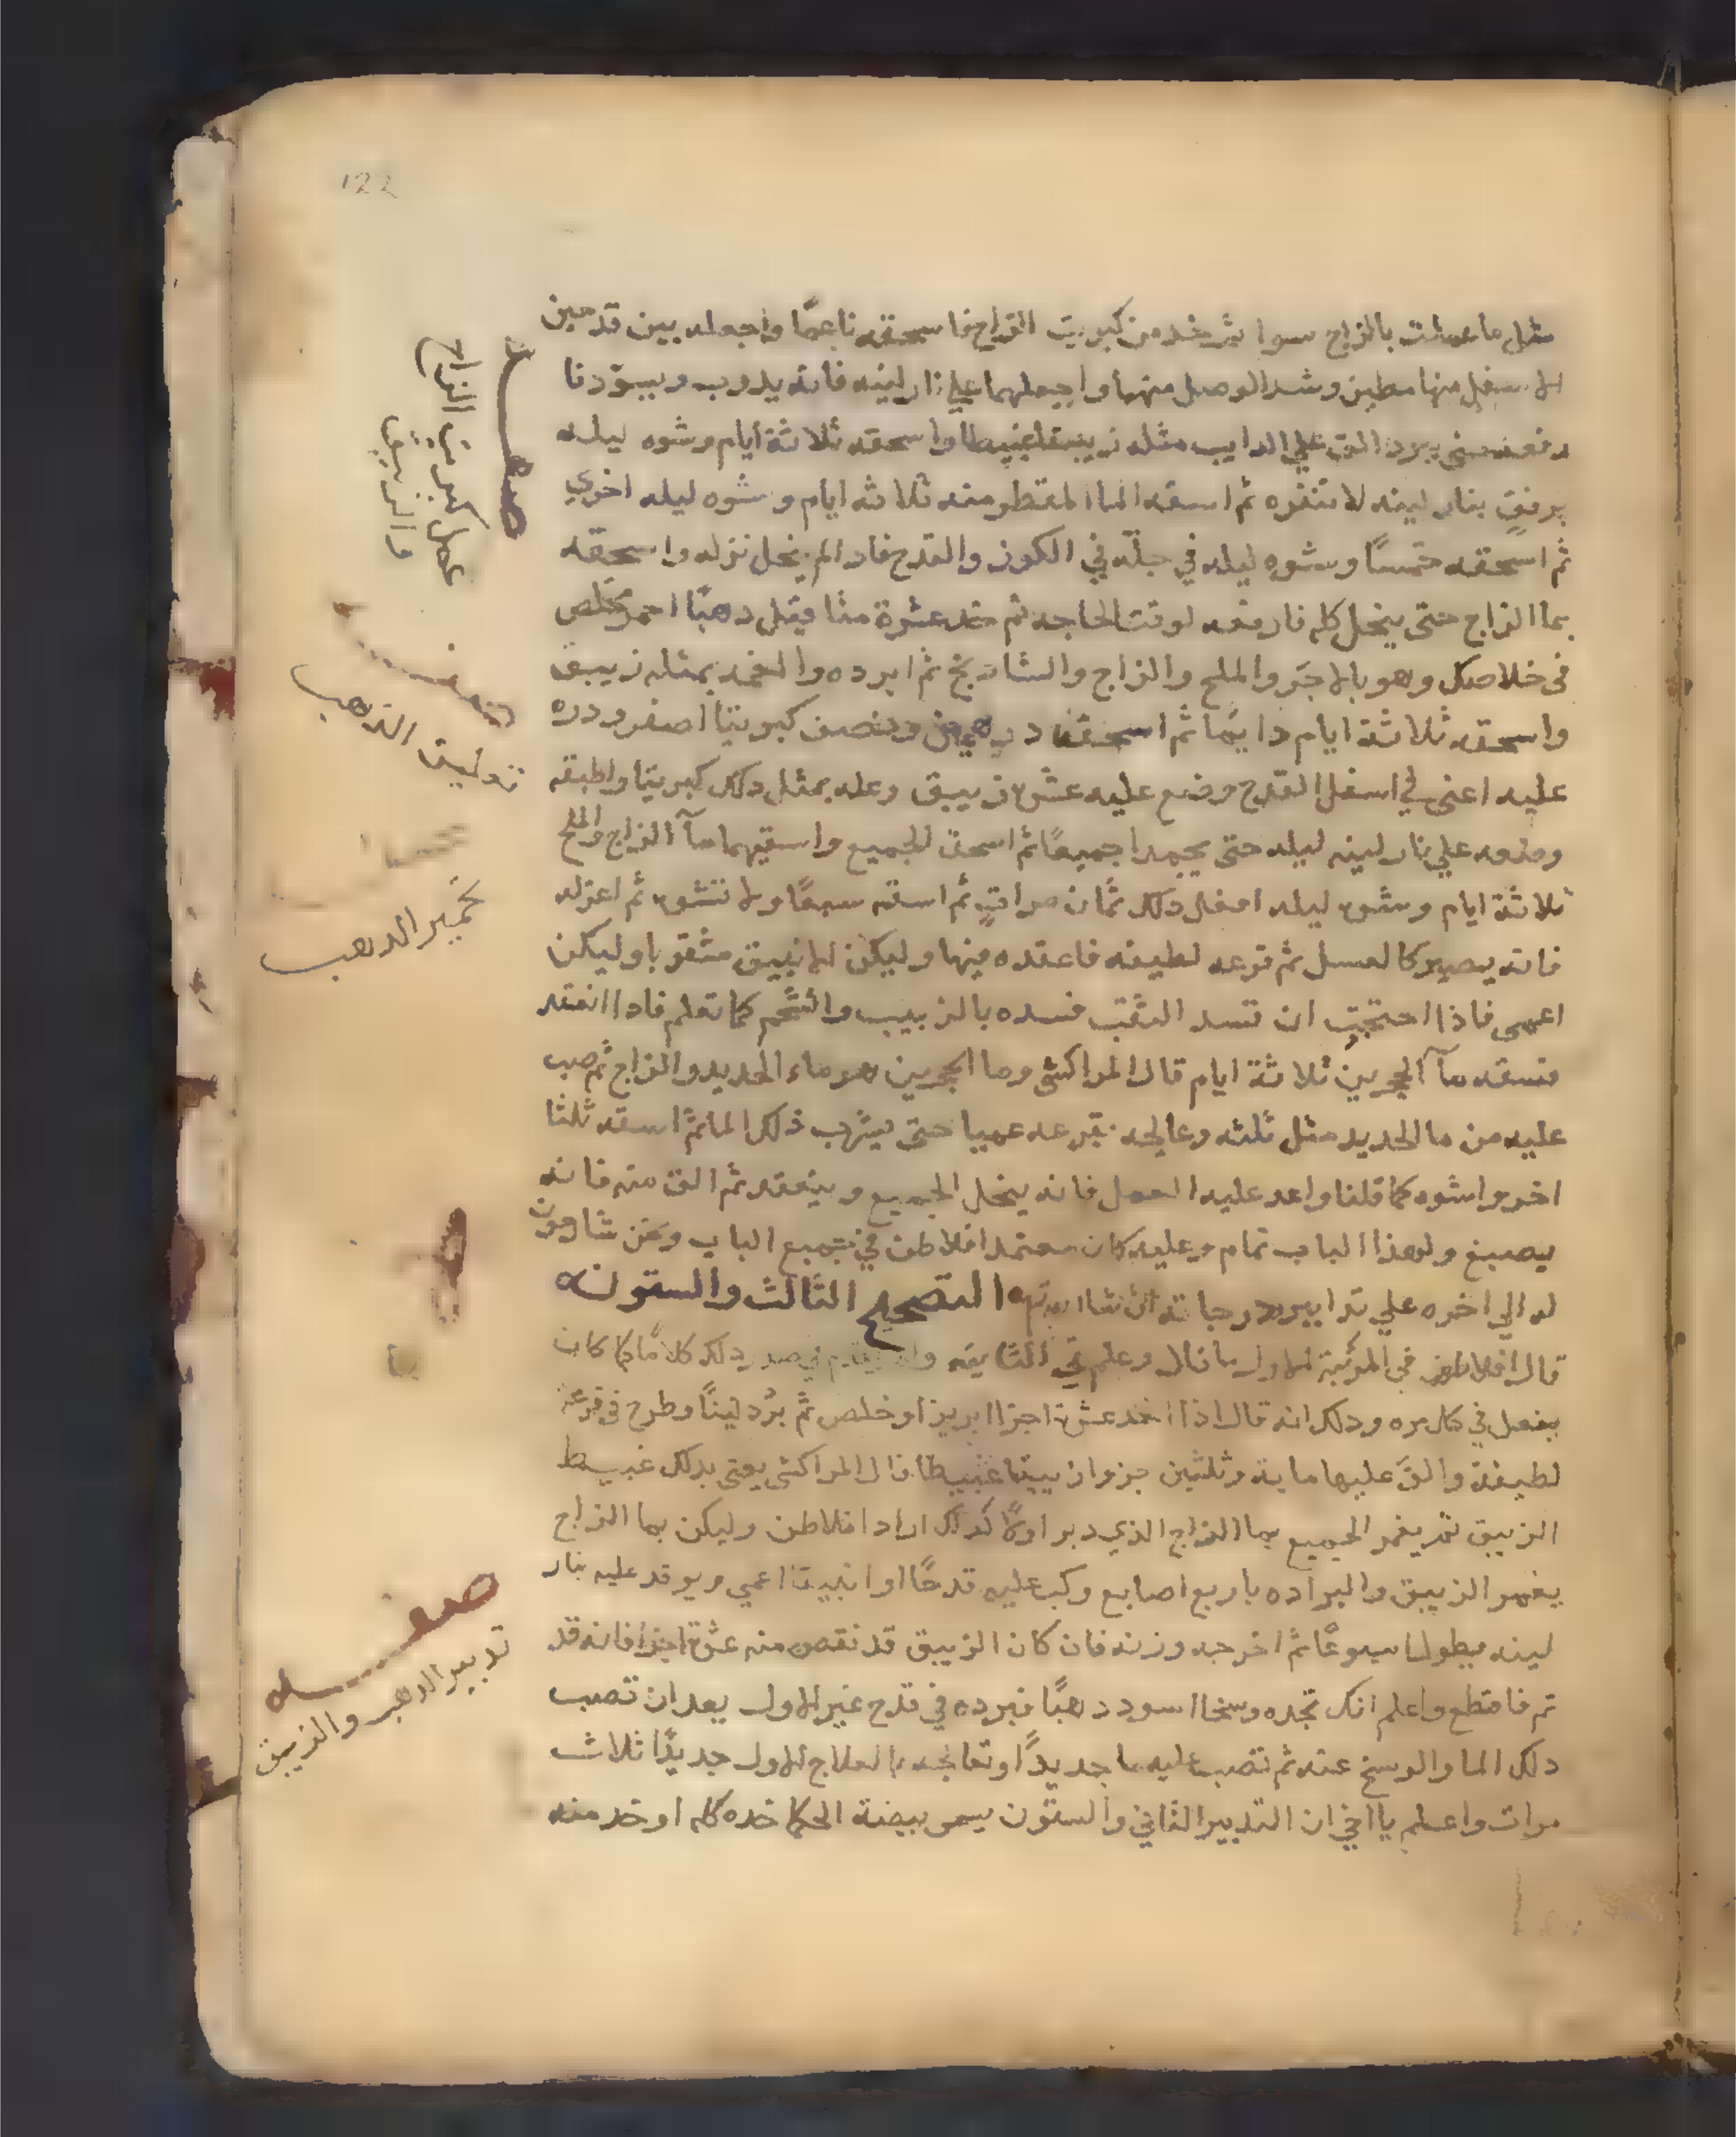 122
مثل ما عملت بالزاج سوا ثم خذ من كبريت الزاج فاسحقه ناعمًا واجعله بين قدحين
الاسفل منها مطين وشد الوصل منهما واجعلهما علي نار لينه فانه يدوب ويسود فا
رفعه حتى يبرد الق علي الدايب مثله زيبقا غبيطا واسحقه ثلاثة ايام وشوه ليله
برفق بنار لينه لا تنفره ثم اسقه الما المقطر منه ثلاثه ايام وشوه ليله اخري
ثم اسحقه خمسًا وشوه ليله في جلّه في الكوز والقدح فاد الم ينحل نزله واسحقه
بما الزاج حتى ينحل كله فارفعه لوقت الحاجه ثم خد عشرة مثاقيل دهبًا احمر تخلص
في خلاصك وهو بالاجر والملح والزاج والشادنج ثم ابرده والغمه بمثله زيبق
واسحقه ثلاثة ايام دايمًا ثم اسحقه درهمين ونصف كبريتا اصفر ودره
عليه اعني في اسفل القدح وضع عليه عشره زيبق وعله بمثل دلك كبريتا واطبقه
ودعه علي نار لينه ليله حتى يجمدا جميعًا ثم اسحق الجميع واسقيهما مآ الزاج والملح
ثلاثة ايام وشوه ليله افعل دلك ثمان مرات ثم اسقه سبعًا ولا تشوه ثم اعزله
فانه يصير كالعسل ثم قرعه لطيفه فاعقده فيها وليكن الانبيق مثقوبا وليكن
اعمى فاذا احتجت ان تسد الثقب فسده بالزبيب والشحم كما تعلم فاد ا انعقد
فسقه مآ الحجرين ثلاثة ايام قال المراكشي وما الحجرين هو ماء الحديد والزاج ثم صب
عليه من ما الحديد مثل ثلثه وعالجه بقرعه عميا حتى يشرب ذلك الما ثم اسقه ثلثا
اخر واشوه كما قلنا واعد عليه العمل فانه ينحل الجميع وينعقد ثم الق منه فانه
يصبغ ولهذا الباب تمام وعليه كان معتمد افلاطن في جميع الباب ونحن شارحون
له الي اخره علي تدابيره ودرجاته ان شا الله تع التصحيح الثالث والستون
قال افلاطن في المرتبة الاولى ما قال وعلم في الثانيه في صدر دلك كلامًا كما كان
يفعل في كل مره ودلك انه قال اذا اخد عشرة اجزا ابريزا وخلص ثم برد لينًا وطرح في قرعة
لطيفة والق عليها ماية وثلثين جزو ازيبقا غبيطا قال المراكشي يعني بدلك غبيط
الزيبق ثم يغمر الجميع بما الزاج الذي دبر اولاً كدلك اراد افلاطن وليكن بما الزاج
يغمر الزيبق والبراده باربع اصابع وكب عليه قدحًا او انبيقا اعمي ويوقد عليه بنار
لينه بطول اسبوعًا ثم اخرجه وزنه فان كان الزيبق قد نقص منه عشرة اجزا فانه قد
تم فاقطع واعلم انك تجده وسخا اسود دهبًا فبرده في قدح غير الاول بعد ان تصب
دلك الما والوسخ عنه ثم تصب عليه ما جديدًا وتعالجه بالعلاج الاول جديدًا ثلاث
مرات واعلم يا اخي ان التدبير الثاني والستون يسمى بيضة الحكما خده كله او خد منه
صفه
عمل كبريت الزاج
والزيبق
صفـه
توليق الذهب
تخمير الدهب
صفـه
تدبير الدهب والزيبق